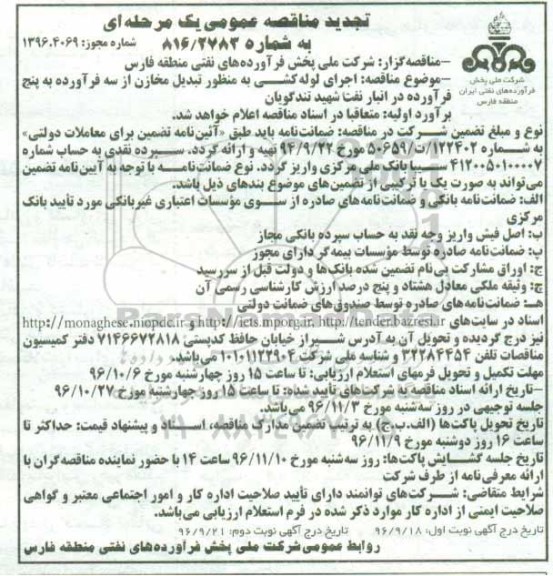 تجدید مناقصه عمومی یک مرحله‌ای
به شماره ۸۱۶/۲۷۸۳
شماره مجوز: ۱۳۹۶.۴۰۶۹
شرکت ملی پخش
فرآورده‌های نفتی ایران
منطقه فارس
–مناقصه‌گزار: شرکت ملی پخش فرآورده‌های نفتی منطقه فارس
–موضوع مناقصه: اجرای لوله‌کشی به منظور تبدیل مخازن از سه فرآورده به پنج
فرآورده در انبار نفت شهید تندگویان
برآورد اولیه: متعاقبا در اسناد مناقصه اعلام خواهد شد.
نوع و مبلغ تضمین شرکت در مناقصه: ضمانت‌نامه باید طبق «آئین‌نامه تضمین برای معاملات دولتی»
به شماره ۱۲۳۴۰۲/ت۵۰۶۵۹ مورخ ۹۴/۹/۲۲ تهیه و ارائه گردد. سپرده نقدی به حساب شماره
بانک ملی مرکزی واریز گردد. نوع ضمانت‌نامه با توجه به آیین‌نامه تضمین
می‌تواند به صورت یک یا ترکیبی از تضمین‌های موضوع بندهای ذیل باشد.
الف: ضمانت‌نامه بانکی و ضمانت‌نامه های صادره از سوی مؤسسات اعتباری غیربانکی مورد تأیید بانک
مرکزی
ب: اصل فیش واریز وجه نقد به حساب سپرده بانکی مجاز
پ: ضمانت‌نامه صادره توسط مؤسسات بیمه‌گر دارای مجوز
ج: اوراق مشارکت بی‌نام تضمین شده بانک‌ها و دولت قبل از سررسید
ح: وثیقه ملکی معادل هشتاد و پنج درصد ارزش کارشناسی رسمی آن
هـ: ضمانت‌نامه‌های صادره توسط صندوق‌های ضمانت دولتی
اسناد در سایت‌های http://iets.mporg.ir, http://tender.bazresi.ir و http://monaghese.niopdc.ir
نیز درج گردیده و تحویل آن به آدرس شیراز خیابان حافظ کدپستی: ۷۱۴۶۶۷۲۸۱۸ دفتر کمیسیون
مناقصات تلفن ۳۲۲۸۴۴۵۴ و شناسه ملی شرکت ۱۰۱۰۱۱۲۳۹۰۴ می‌باشد.
مهلت تکمیل و تحویل فرمهای استعلام ارزیابی: تا ساعت ۱۵ روز چهارشنبه مورخ ۹۶/۱۰/۶
–تاریخ ارائه اسناد مناقصه به شرکت‌های تأیید شده: تا ساعت ۱۵ روز چهارشنبه مورخ ۹۶/۱۰/۲۷
جلسه توجیهی در روز سه‌شنبه مورخ ۹۶/۱۱/۳ می‌باشد.
تاریخ تحویل پاکت‌ها (الف.ب.ج) به ترتیب تضمین مدارک مناقصه، اسناد و پیشنهاد قیمت: حداکثر تا
ساعت ۱۶ روز دوشنبه مورخ ۹۶/۱۱/۹
تاریخ جلسه گشایش پاکت‌ها: روز سه‌شنبه مورخ ۹۶/۱۱/۱۰ ساعت ۱۴ با حضور نماینده مناقصه‌گران با
ارائه معرفی‌نامه از طرف شرکت
شرایط متقاضی: شرکت‌های توانمند دارای تأیید صلاحیت اداره کار و امور اجتماعی معتبر و گواهی
صلاحیت ایمنی از اداره کار موارد ذکر شده در فرم استعلام ارزیابی می‌باشد.
تاریخ درج آگهی نوبت اول: ۹۶/۹/۱۸ تاریخ درج آگهی نوبت دوم: ۹۶/۹/۲۱
روابط عمومی شرکت ملی پخش فرآورده‌های نفتی منطقه فارس